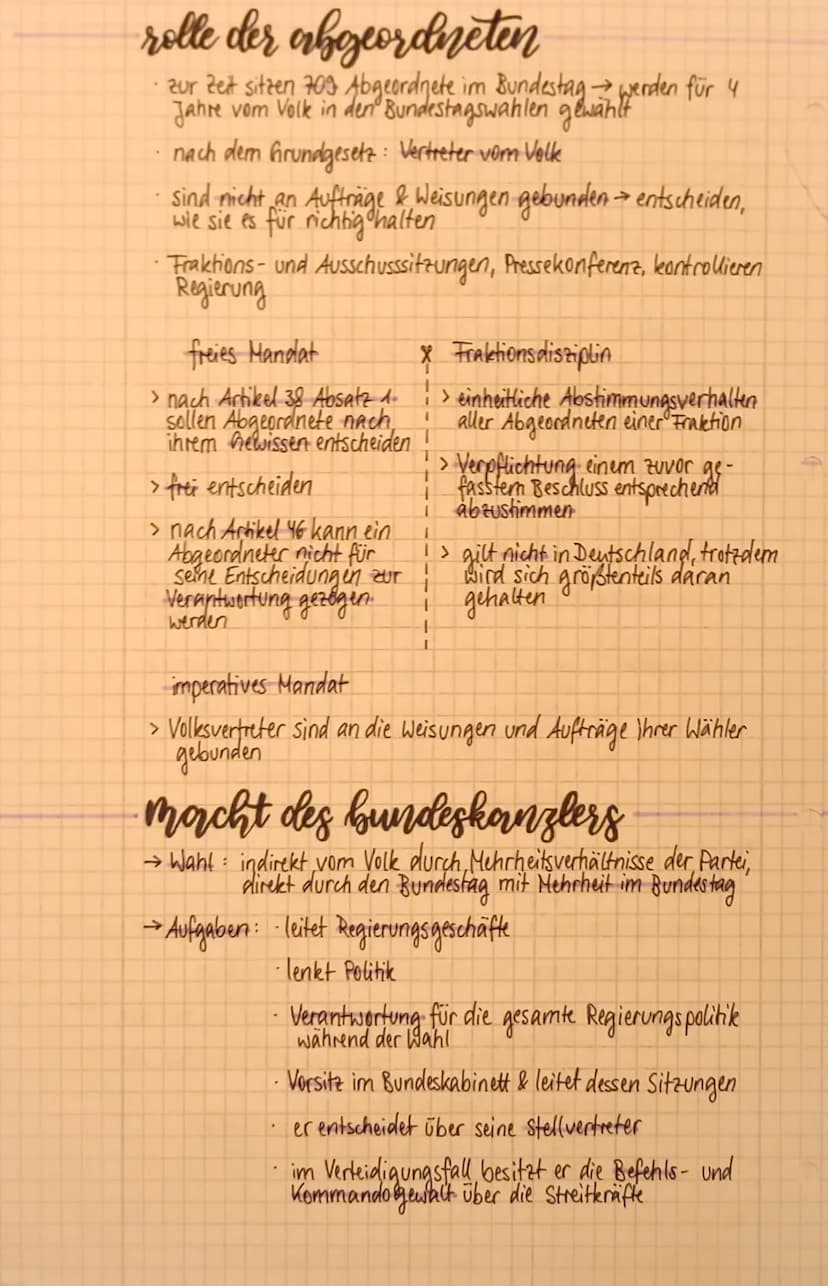 rolle der abgeordneten
· zur Zeit sitzen 709 Abgeordnete im Bundestag → werden für 4
Jahre vom Volk in den Bundestagswahlen gewählt
· nach dem Grundgesetz: Vertreter vom Volk
· sind nicht an Aufträge & Weisungen gebunden → entscheiden,
wie sie es für richtig halten
· Fraktions- und Ausschusssitzungen, Pressekonferenz, kontrollieren
Regierung
freies Mandat
> nach Artikel 38 Absatz 1
sollen Abgeordnete nach
ihrem Gewissen entscheiden
> frei entscheiden
> nach Artikel 46 kann ein
Abgeordneter nicht für
seine Entscheidungen zur
Verantwortung gezogen
werden
Fraktionsdisziplin
> einheitliche Abstimmungsverhalten
aller Abgeordneten einer Fraktion
> Verpflichtung einem zuvor ge-
fasstem Beschluss entsprechend
abzustimmen
> gilt nicht in Deutschland, trotzdem
wird sich größtenteils daran
gehalten
imperatives Mandat
> Volksvertreter sind an die Weisungen und Aufträge Ihrer Wähler
gebunden
macht des bundeskanzlers
→ Wahl: indirekt vom Volk durch Mehrheitsverhältnisse der Partei,
direkt durch den Bundestag mit Mehrheit im Bundestag
→ Aufgaben: · leitet Regierungsgeschäfte
· lenkt Politik
· Verantwortung für die gesamte Regierungspolitik
während der Wahl
· Vorsitz im Bundeskabinett & leitet dessen Sitzungen
· er entscheidet über seine Stellvertreter
· im Verteidigungsfall besitzt er die Befehls- und
Kommandogewalt über die Streitkräfte